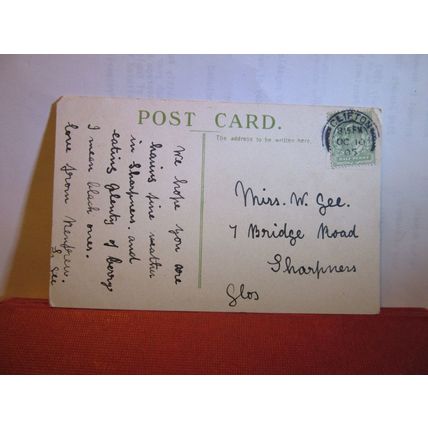 POST CARD.
The address to be written here.
CLIFTON
8.15 PM
OC 10
HALF PENNY
We hope you are
having fine weather
in Sharpness. and
eating plenty of berry
I mean black ones.
love from
S. Gee
Miss. W. Gee.
7 Bridge Road
Sharpness
Glos